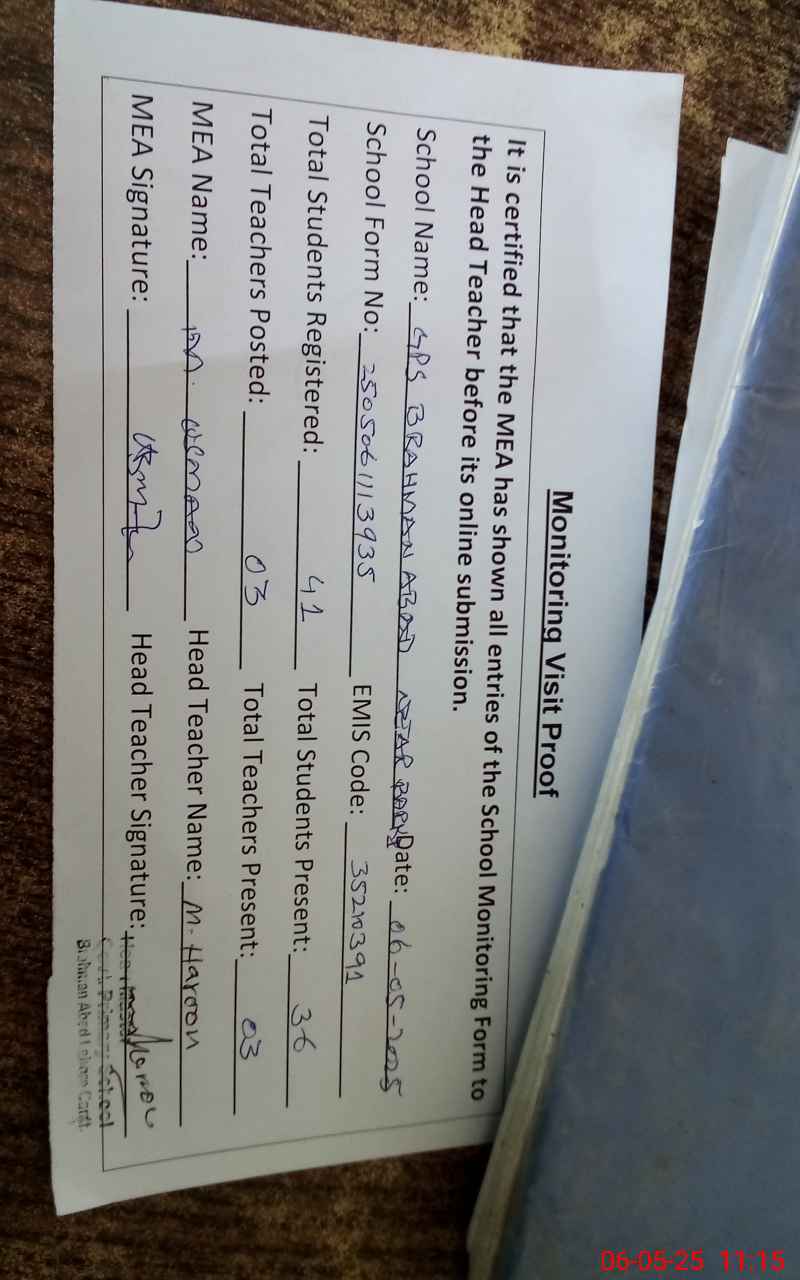 Monitoring Visit Proof
It is certified that the MEA has shown all entries of the School Monitoring Form to
the Head Teacher before its online submission.
School Name: GPS BRAHMAN ABAD Date: 06-05-2025
School Form No: 2505061113935 EMIS Code: 35210391
Total Students Registered: 41 Total Students Present: 36
Total Teachers Posted: 03 Total Teachers Present: 03
MEA Name: M. Head Teacher Name: M. Haroon
MEA Signature: Head Teacher Signature: Haroon
Primary School
Abad Lahore Cantt.
06-05-25 11:15